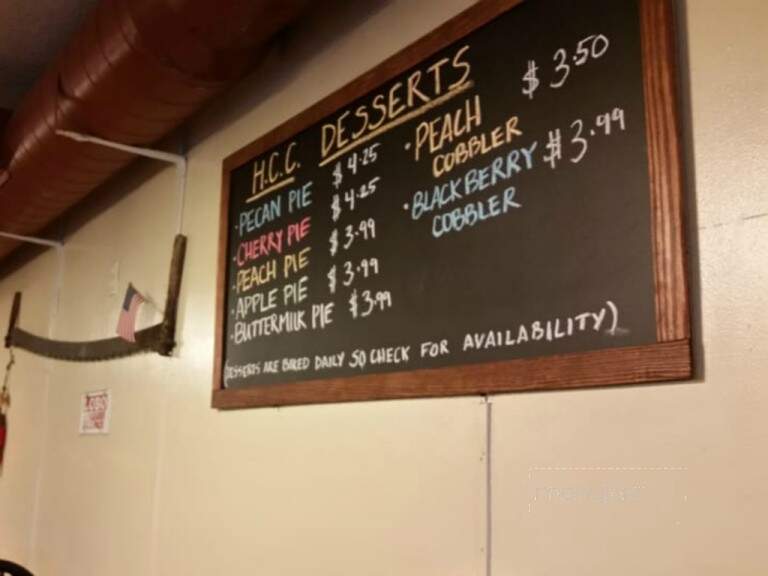 H.C.C. DESSERTS
• PECAN PIE $4.25
• CHERRY PIE $4.25
• PEACH PIE $3.99
• APPLE PIE $3.99
• BUTTERMILK PIE $3.99
• PEACH COBBLER $3.50
• BLACKBERRY COBBLER $3.99
(DESSERTS ARE BAKED DAILY SO CHECK FOR AVAILABILITY)